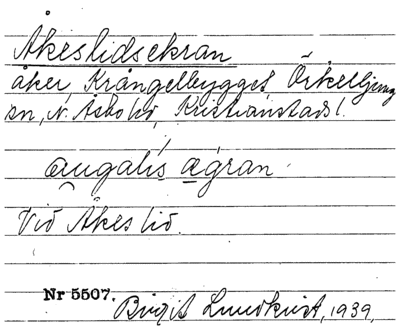 Åkeslidsekran
åker, Krångelbygget, Örkelljunga
sn, N. Åsbo hd, Kristianstads l.
a͜ugalis ægran.
Vid Åkes lid.
Nr 5507.
Birgit Lundkvist, 1939.